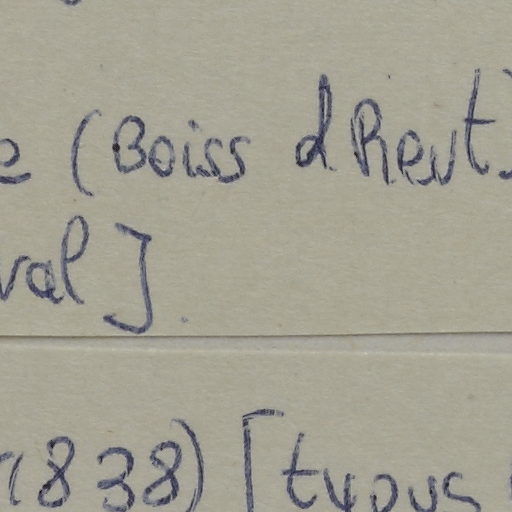 e (Boiss & Reut)
val].
1838) [typus